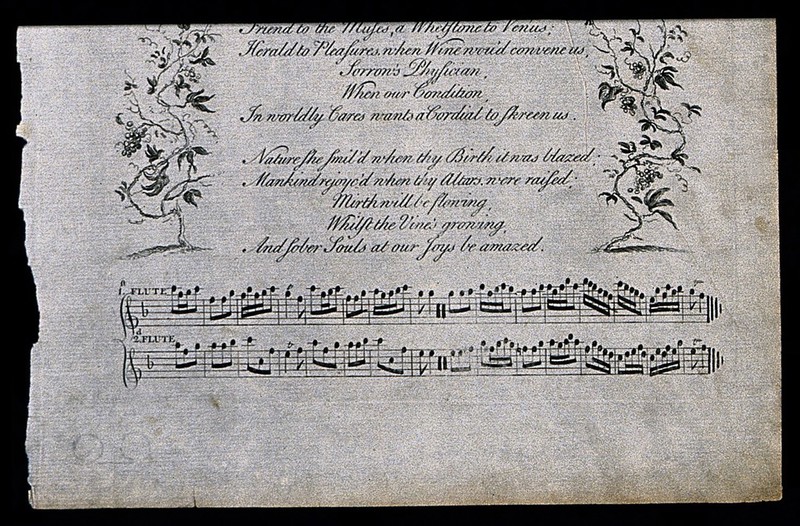 Friend to the Muſes, a Whetſtone to Venus;
Herald to Pleaſures when Wine wou'd convene us,
Sorrow's Phyſician,
When our Condition,
In worldly Cares wants a Cordial to ſkreen us.
Nature ſhe ſmil'd when thy Birth it was blazed;
Mankind rejoyc'd when thy Altars were raiſed;
Mirth will be flowing,
Whilſt the Vine's growing,
And ſober Souls at our Joys be amazed.
1. FLUTE
2.d FLUTE